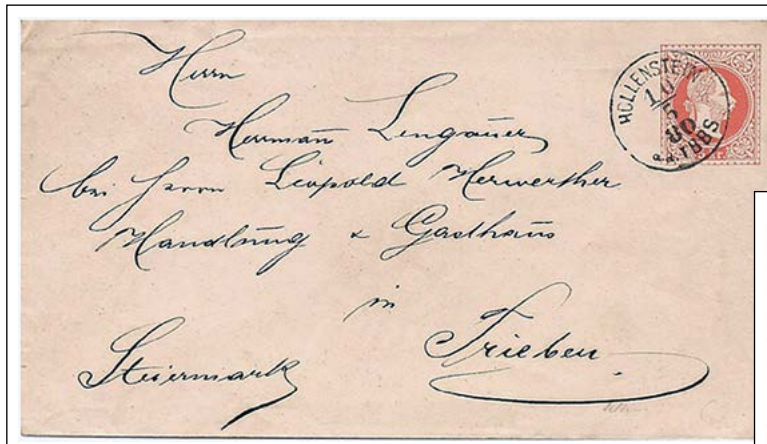 Herrn
Hermañ Lengauer
bei Herrn Leopold Herwerther
Handlung & Gasthaus
in
Steiermark
Trieben
HOLLENSTEIN
10
80
a.d. YBBS